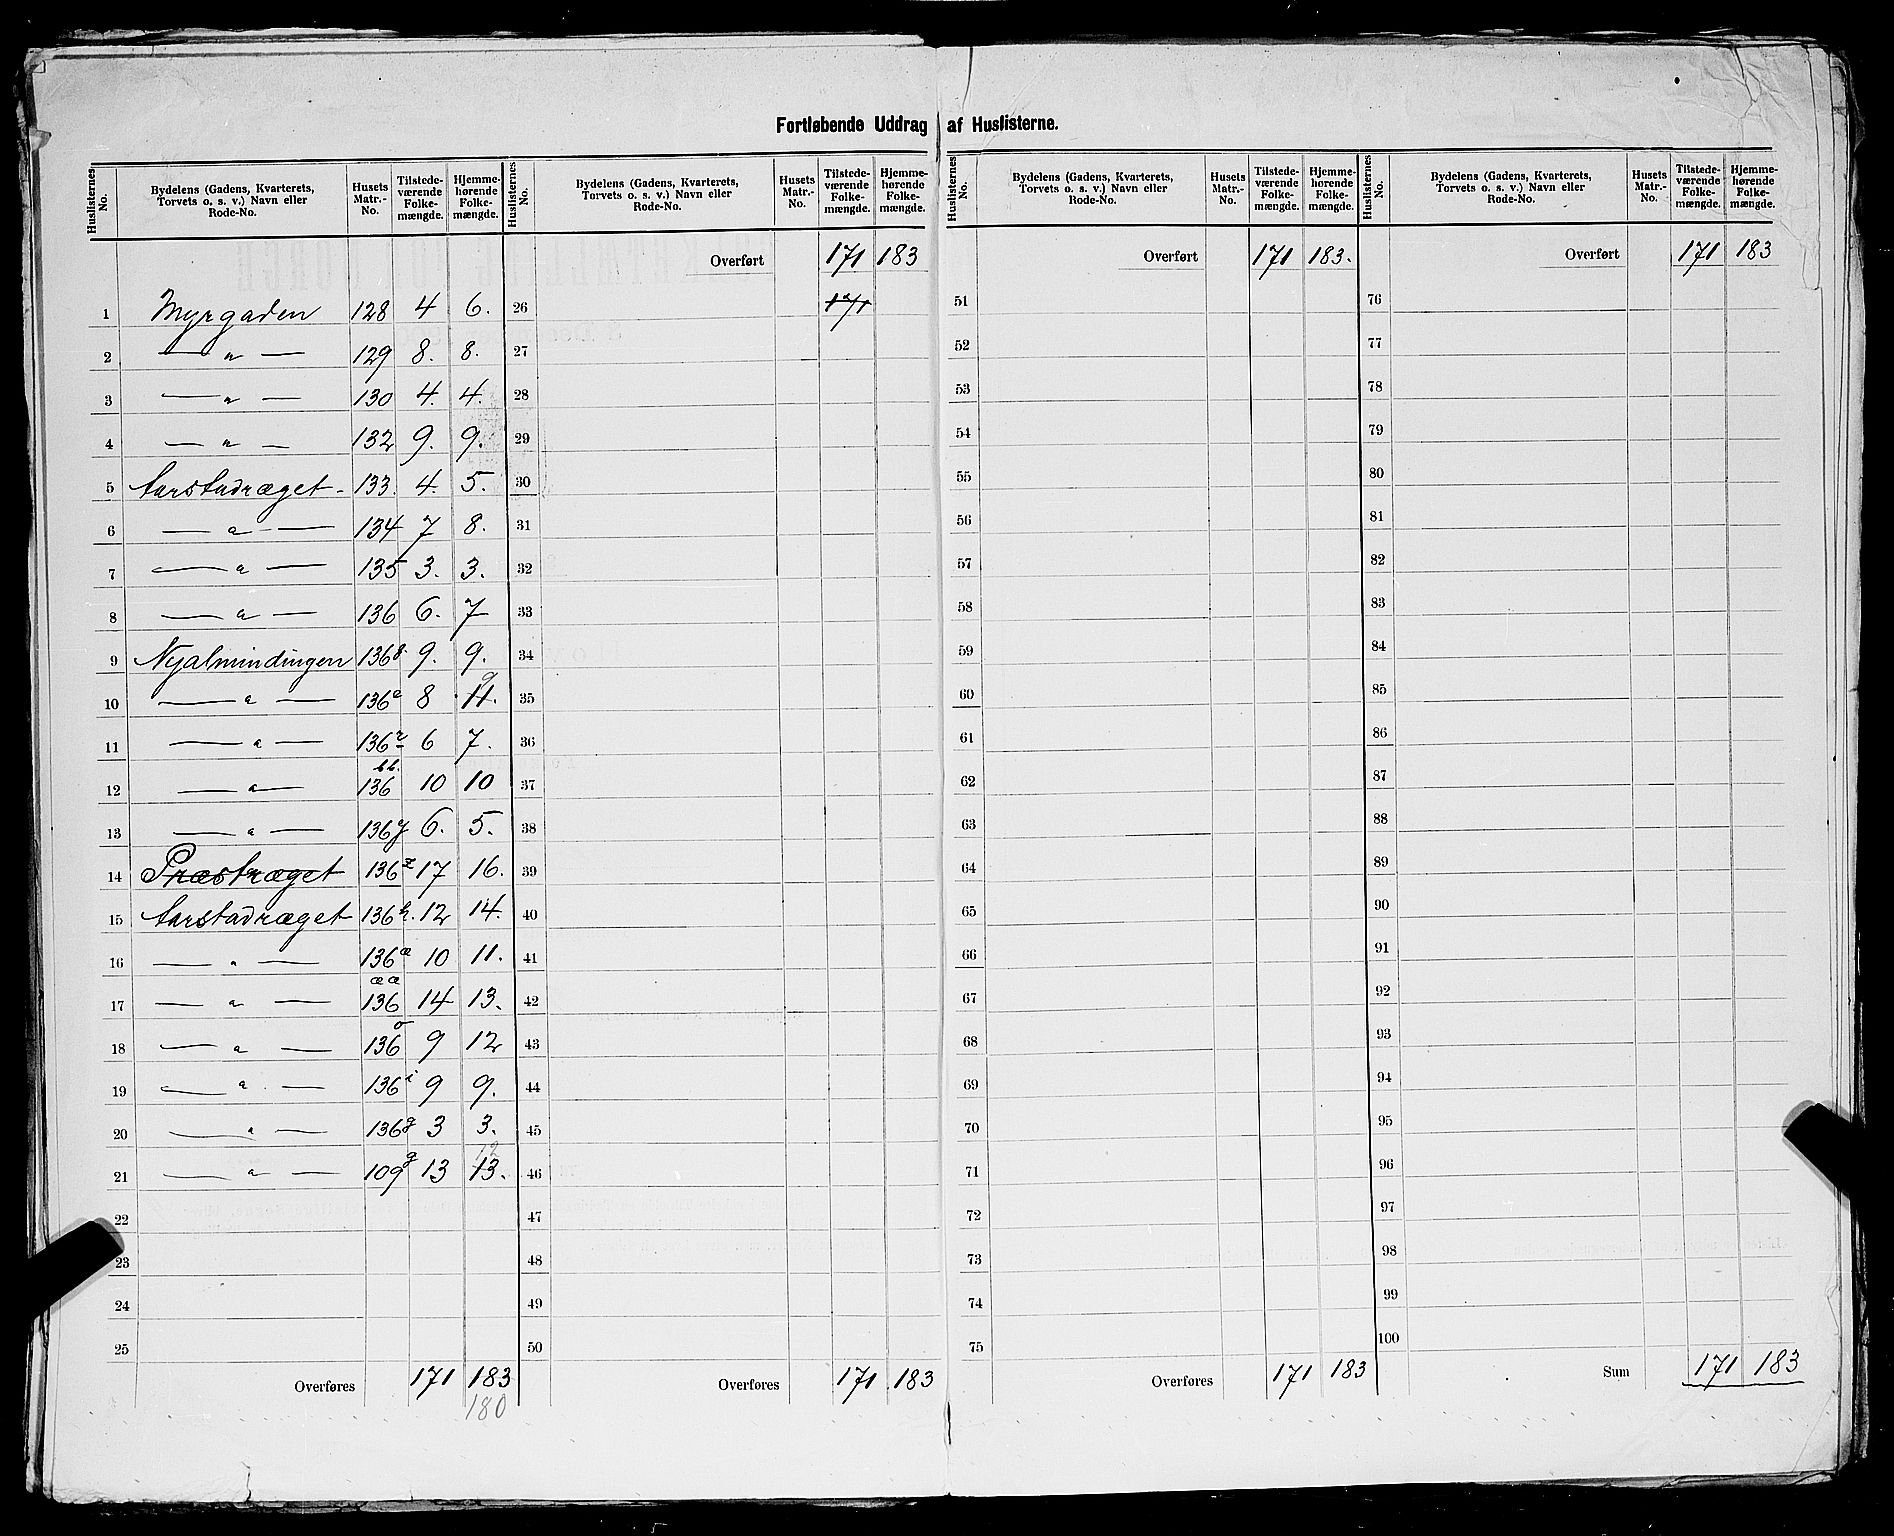 Fortløbende Uddrag af Huslisterne.
Huslisternes No. | Bydelens (Gadens, Kvarterets, Torvets o. s. v.) Navn eller Rode-No. | Husets Matr.-No. | Tilstedeværende Folkemængde. | Hjemmehørende Folkemængde.
1 Myrgaden 128 4 6.
2 — " — 129 8. 8.
3 — " — 130 4. 4.
4 — " — 132 9. 9.
5 Aarstadræget - 133. 4. 5.
6 — " — 134 7 8.
7 — " — 135 3. 3.
8 — " — 136 6. 7
9 Nyalmindingen 136 9. 9.
10 — " — 136 8 11. 9
11 — " — 136 6 7.
12 — " — 136 bb. 10 10
13 — " — 136 y 6. 5.
14 Præstræget 136 z 17 16.
15 Aarstadræget 136 h. 12 14.
16 — " — 136 æ 10 11.
17 — " — 136 ææ 14 13.
18 — " — 136 o 9 12
19 — " — 136 i 9 9.
20 — " — 136 g 3 3.
21 — " — 109 g 13 13. 12
22
23
24
25
Overføres 171 183
180
Huslisternes No. | Bydelens (Gadens, Kvarterets, Torvets o. s. v.) Navn eller Rode-No. | Husets Matr.-No. | Tilstedeværende Folkemængde. | Hjemmehørende Folkemængde.
Overført 171 183
26 171
27
28
29
30
31
32
33
34
35
36
37
38
39
40
41
42
43
44
45
46
47
48
49
50
Overføres 171 183
Huslisternes No. | Bydelens (Gadens, Kvarterets, Torvets o. s. v.) Navn eller Rode-No. | Husets Matr.-No. | Tilstedeværende Folkemængde. | Hjemmehørende Folkemængde.
Overført 171 183.
51
52
53
54
55
56
57
58
59
60
61
62
63
64
65
66
67
68
69
70
71
72
73
74
75
Overføres 171 183
Huslisternes No. | Bydelens (Gadens, Kvarterets, Torvets o. s. v.) Navn eller Rode-No. | Husets Matr.-No. | Tilstedeværende Folkemængde. | Hjemmehørende Folkemængde.
Overført 171 183
76
77
78
79
80
81
82
83
84
85
86
87
88
89
90
91
92
93
94
95
96
97
98
99
100
Sum 171 183